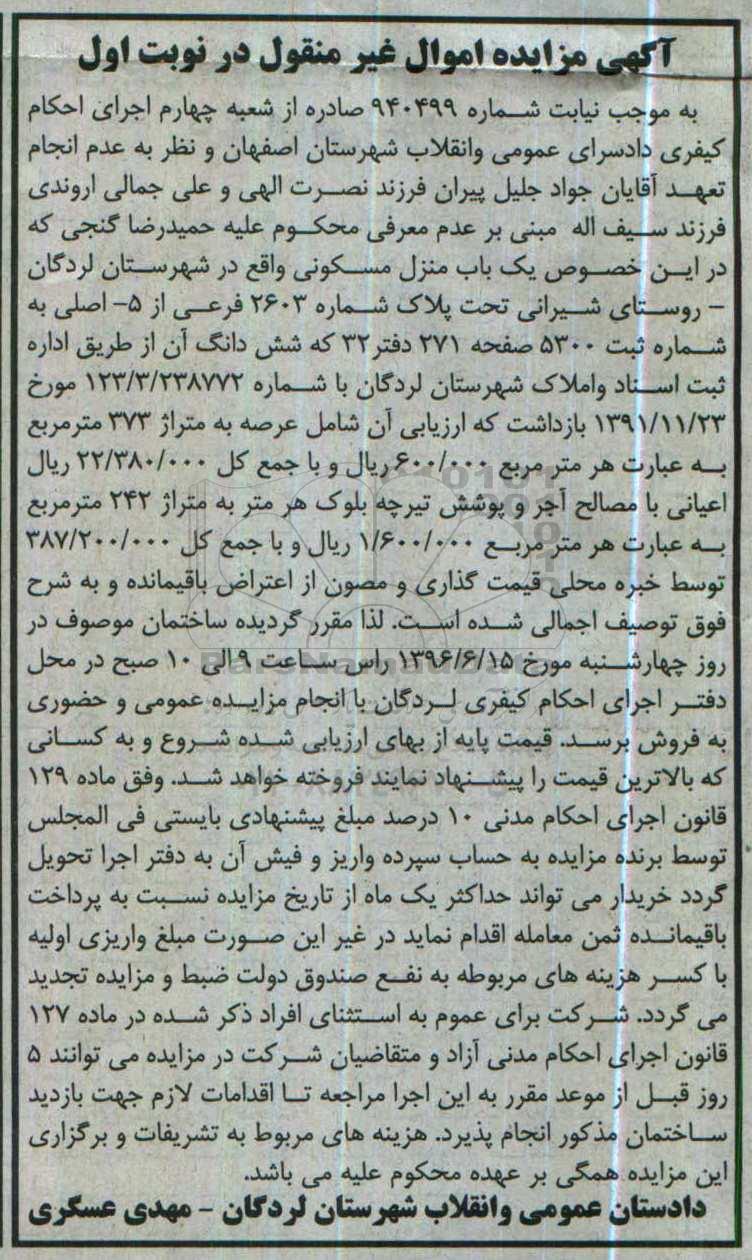 آگهی مزایده اموال غیر منقول در نوبت اول
به موجب نیابت شماره ۹۴۰۴۹۹ صادره از شعبه چهارم اجرای احکام
کیفری دادسرای عمومی وانقلاب شهرستان اصفهان و نظر به عدم انجام
تعهد آقایان جواد جلیل پیران فرزند نصرت الهی و علی جمالی اروندی
فرزند سیف اله مبنی بر عدم معرفی محکوم علیه حمیدرضا گنجی که
در این خصوص یک باب منزل مسکونی واقع در شهرستان لردگان
- روستای شیرانی تحت پلاک شماره ۲۶۰۳ فرعی از ۵- اصلی به
شماره ثبت ۵۳۰۰ صفحه ۲۷۱ دفتر۳۲ که شش دانگ آن از طریق اداره
ثبت اسناد واملاک شهرستان لردگان با شماره ۱۲۳/۳/۲۳۸۷۷۲ مورخ
۱۳۹۱/۱۱/۲۳ بازداشت که ارزیابی آن شامل عرصه به متراژ ۳۷۳ مترمربع
به عبارت هر متر مربع ۶۰۰/۰۰۰ ریال و با جمع کل ۲۲/۳۸۰/۰۰۰ ریال
اعیانی با مصالح آجر و پوشش تیرچه بلوک هر متر به متراژ ۲۴۲ مترمربع
به عبارت هر متر مربع ۱/۶۰۰/۰۰۰ ریال و با جمع کل ۳۸۷/۲۰۰/۰۰۰
توسط خبره محلی قیمت گذاری و مصون از اعتراض باقیمانده و به شرح
فوق توصیف اجمالی شده است. لذا مقرر گردیده ساختمان موصوف در
روز چهارشنبه مورخ ۱۳۹۶/۶/۱۵ راس ساعت ۹ الی ۱۰ صبح در محل
دفتر اجرای احکام کیفری لردگان با انجام مزایده عمومی و حضوری
به فروش برسد. قیمت پایه از بهای ارزیابی شده شروع و به کسانی
که بالاترین قیمت را پیشنهاد نمایند فروخته خواهد شد. وفق ماده ۱۲۹
قانون اجرای احکام مدنی ۱۰ درصد مبلغ پیشنهادی بایستی فی المجلس
توسط برنده مزایده به حساب سپرده واریز و فیش آن به دفتر اجرا تحویل
گردد خریدار می تواند حداکثر یک ماه از تاریخ مزایده نسبت به پرداخت
باقیمانده ثمن معامله اقدام نماید در غیر این صورت مبلغ واریزی اولیه
با کسر هزینه های مربوطه به نفع صندوق دولت ضبط و مزایده تجدید
می گردد. شرکت برای عموم به استثنای افراد ذکر شده در ماده ۱۲۷
قانون اجرای احکام مدنی آزاد و متقاضیان شرکت در مزایده می توانند ۵
روز قبل از موعد مقرر به این اجرا مراجعه تا اقدامات لازم جهت بازدید
ساختمان مذکور انجام پذیرد. هزینه های مربوط به تشریفات و برگزاری
این مزایده همگی بر عهده محکوم علیه می باشد.
دادستان عمومی وانقلاب شهرستان لردگان - مهدی عسگری